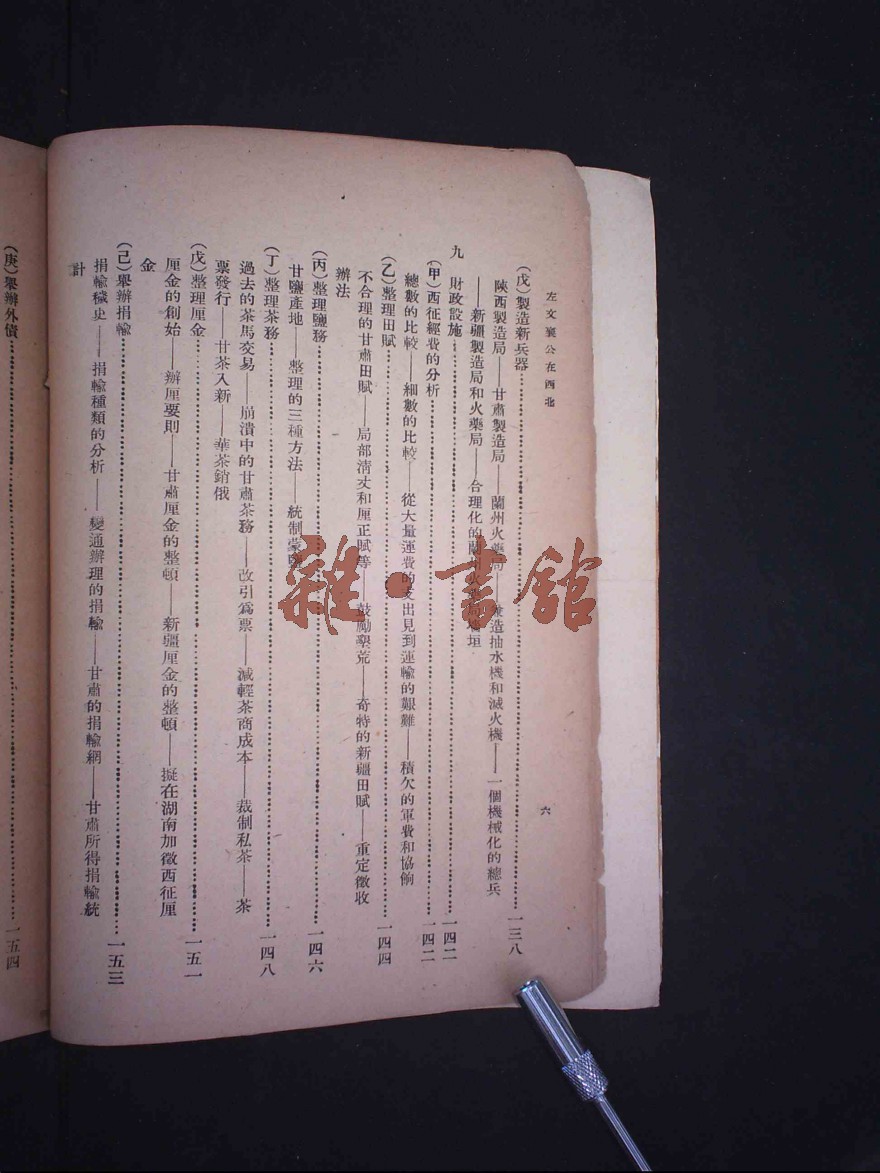 左文襄公在西北
六
(戊)製造新兵器…………一三八
陝西製造局——甘肅製造局——蘭州火藥局——兼造抽水機和滅火機——一個機械化的總兵
——新疆製造局和火藥局——合理化的蘭州火藥局牆垣
九 財政設施…………一四二
(甲)西征經費的分析…………一四二
總數的比較——細數的比較——從大量運費的支出見到運輸的艱難——積欠的軍費和協餉
(乙)整理田賦…………一四四
不合理的甘肅田賦——局部清丈和厘正賦等——鼓勵墾荒——奇特的新疆田賦——重定徵收
辦法
(丙)整理鹽務…………一四六
甘鹽產地——整理的三種方法——統制蒙鹽
(丁)整理茶務…………一四八
過去的茶馬交易——崩潰中的甘肅茶務——改引為票——減輕茶商成本——裁制私茶——茶
票發行——甘茶入新——華茶銷俄
(戊)整理厘金…………一五一
厘金的創始——辦厘要則——甘肅厘金的整頓——新疆厘金的整頓——擬在湖南加徵西征厘
金
(己)舉辦捐輸…………一五三
捐輸穢史——捐輸種類的分析——變通辦理的捐輸——甘肅的捐輸網——甘肅所得捐輸統
計
(庚)舉辦外債…………一五四
雜·書館